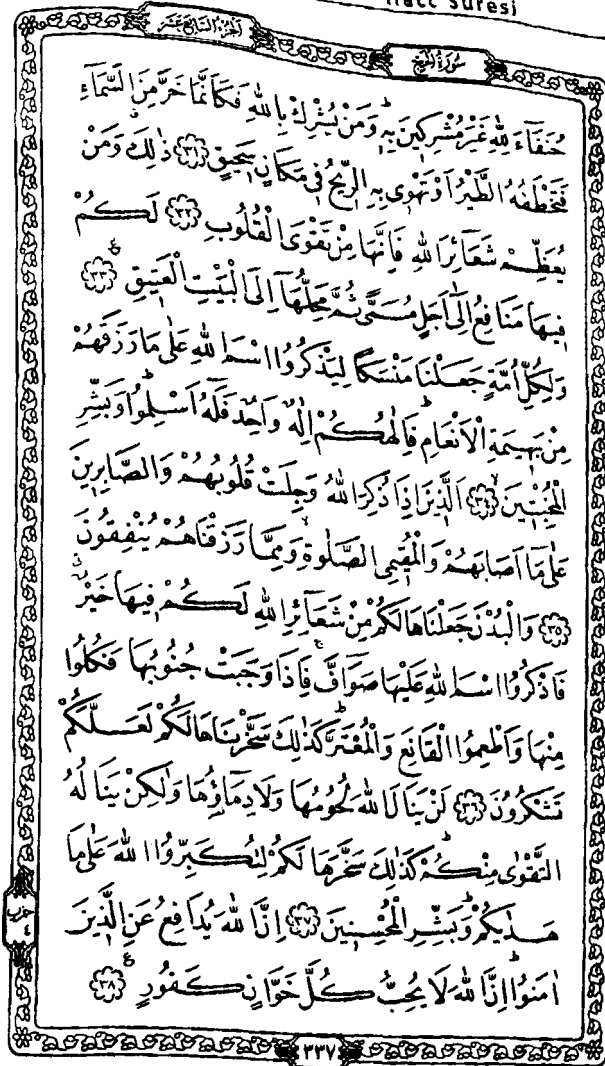 Hacc Suresi
الجزء السابع عشر
سورة الحج
حُنَفَٓاءَ لِلّٰهِ غَيْرَ مُشْرِك۪ينَ بِه۪ۜ وَمَنْ يُشْرِكْ بِاللّٰهِ فَكَاَنَّمَا خَرَّ مِنَ السَّمَٓاءِ
فَتَخْطَفُهُ الطَّيْرُ اَوْ تَهْو۪ي بِهِ الرّ۪يحُ ف۪ي مَكَانٍ سَح۪يقٍ ﴿٣١﴾ ذٰلِكَ وَمَنْ
يُعَظِّمْ شَعَٓائِرَ اللّٰهِ فَاِنَّهَا مِنْ تَقْوَى الْقُلُوبِ ﴿٣٢﴾ لَكُمْ
ف۪يهَا مَنَافِعُ اِلٰٓى اَجَلٍ مُسَمًّى ثُمَّ مَحِلُّهَٓا اِلَى الْبَيْتِ الْعَت۪يقِ ﴿٣٣﴾
وَلِكُلِّ اُمَّةٍ جَعَلْنَا مَنْسَكًا لِيَذْكُرُوا اسْمَ اللّٰهِ عَلٰى مَا رَزَقَهُمْ
مِنْ بَه۪يمَةِ الْاَنْعَامِۜ فَاِلٰهُكُمْ اِلٰهٌ وَاحِدٌ فَلَهُٓ اَسْلِمُواۜ وَبَشِّرِ
الْمُخْبِت۪ينَۙ ﴿٣٤﴾ اَلَّذ۪ينَ اِذَا ذُكِرَ اللّٰهُ وَجِلَتْ قُلُوبُهُمْ وَالصَّابِر۪ينَ
عَلٰى مَٓا اَصَابَهُمْ وَالْمُق۪يمِي الصَّلٰوةِۙ وَمِمَّا رَزَقْنَاهُمْ يُنْفِقُونَ
﴿٣٥﴾ وَالْبُدْنَ جَعَلْنَاهَا لَكُمْ مِنْ شَعَٓائِرِ اللّٰهِ لَكُمْ ف۪يهَا خَيْرٌۗ
فَاذْكُرُوا اسْمَ اللّٰهِ عَلَيْهَا صَوَٓافَّۚ فَاِذَا وَجَبَتْ جُنُوبُهَا فَكُلُوا
مِنْهَا وَاَطْعِمُوا الْقَانِعَ وَالْمُعْتَرَّۜ كَذٰلِكَ سَخَّرْنَاهَا لَكُمْ لَعَلَّكُمْ
تَشْكُرُونَ ﴿٣٦﴾ لَنْ يَنَالَ اللّٰهَ لُحُومُهَا وَلَا دِمَٓاؤُ۬هَا وَلٰكِنْ يَنَالُهُ
التَّقْوٰى مِنْكُمْۜ كَذٰلِكَ سَخَّرَهَا لَكُمْ لِتُكَبِّرُوا اللّٰهَ عَلٰى مَا
هَدٰيكُمْۜ وَبَشِّرِ الْمُحْسِن۪ينَ ﴿٣٧﴾ اِنَّ اللّٰهَ يُدَافِعُ عَنِ الَّذ۪ينَ
اٰمَنُواۜ اِنَّ اللّٰهَ لَا يُحِبُّ كُلَّ خَوَّانٍ كَفُورٍ ﴿٣٨﴾
حزب
٤
٣٣٧